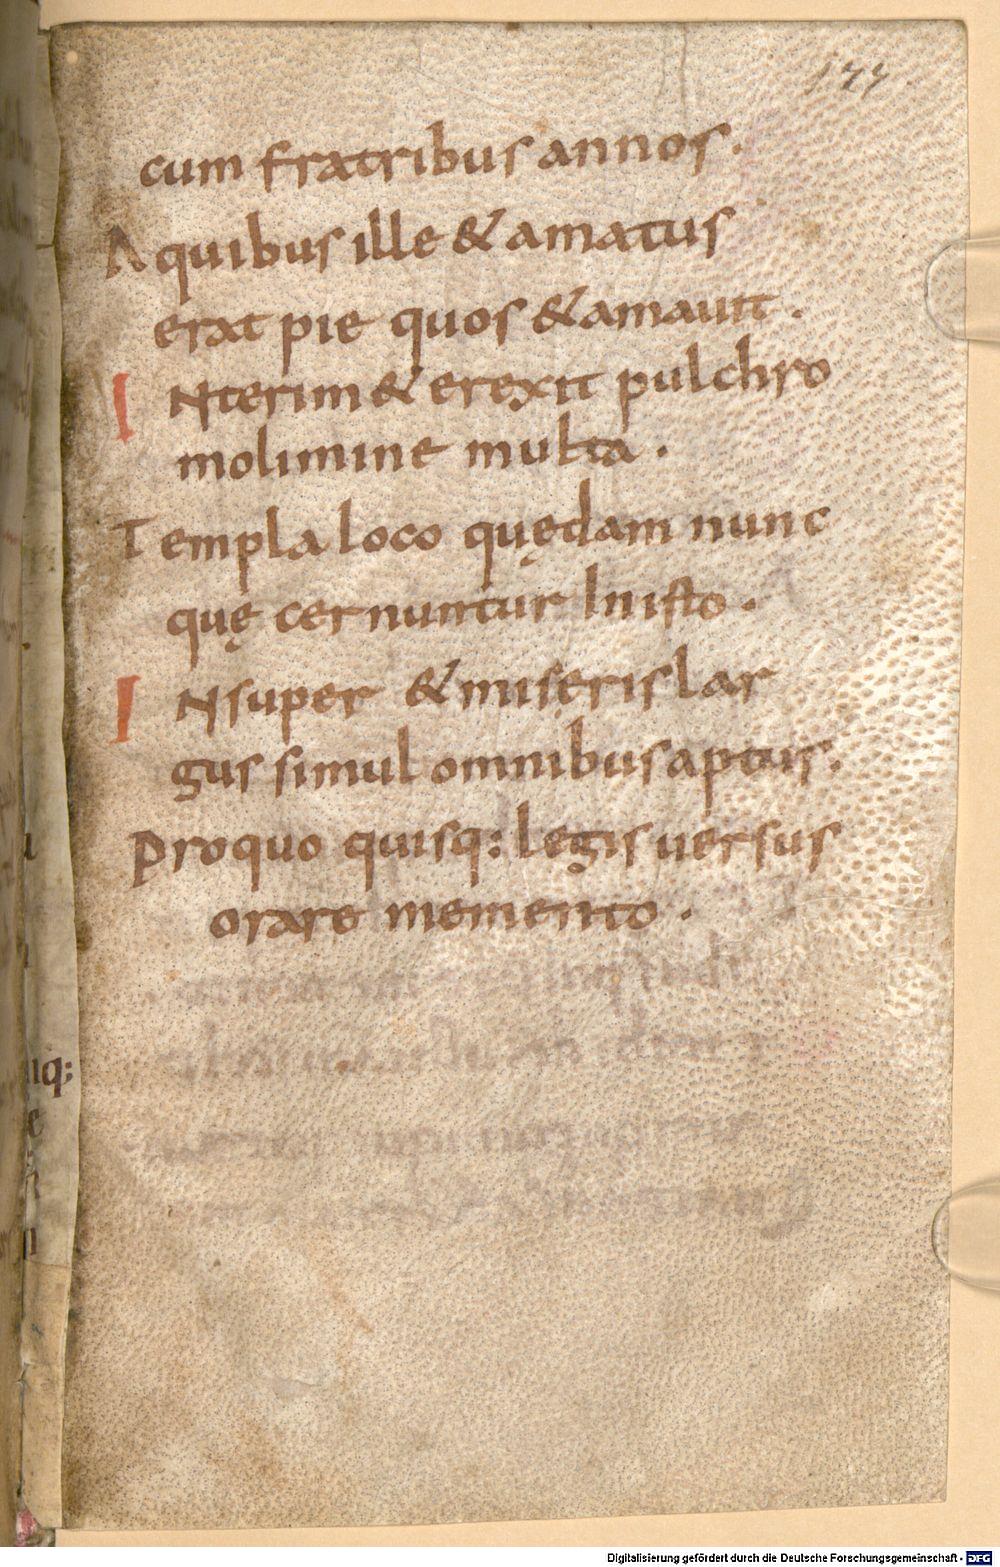 177
cum fratribus annos.
A quibus ille & amatus
erat pie quos & amauit.
INterim & erexit pulchro
molimine multa.
Templa loco quędam nunc
quę cernuntur In isto.
INsuper & misęris lar
gus simul omnibus aptus.
Pro quo quisq: legis uersus
orare memento.
nq;
Digitalisierung gefördert durch die Deutsche Forschungsgemeinschaft - DFG